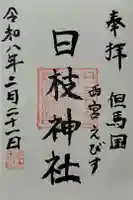 奉拝
但馬国
西宮えびす
日枝神社
令和八年二月二十一日